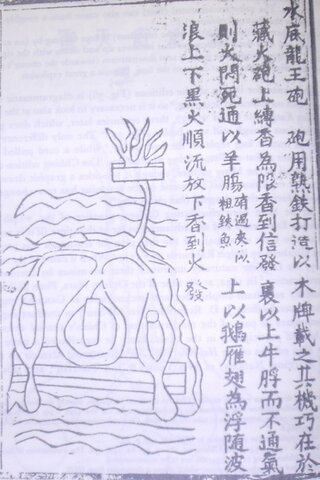 水底龍王砲 砲用熟鉄打造以木牌載之其機巧在於
藏火砲上縛香為限香到信發裏以上牛脬而不通氣
則火悶死通以羊腸過夾以粗鉄上以鵝雁翅為浮隨波
浪上下黑火順流放下香到火發